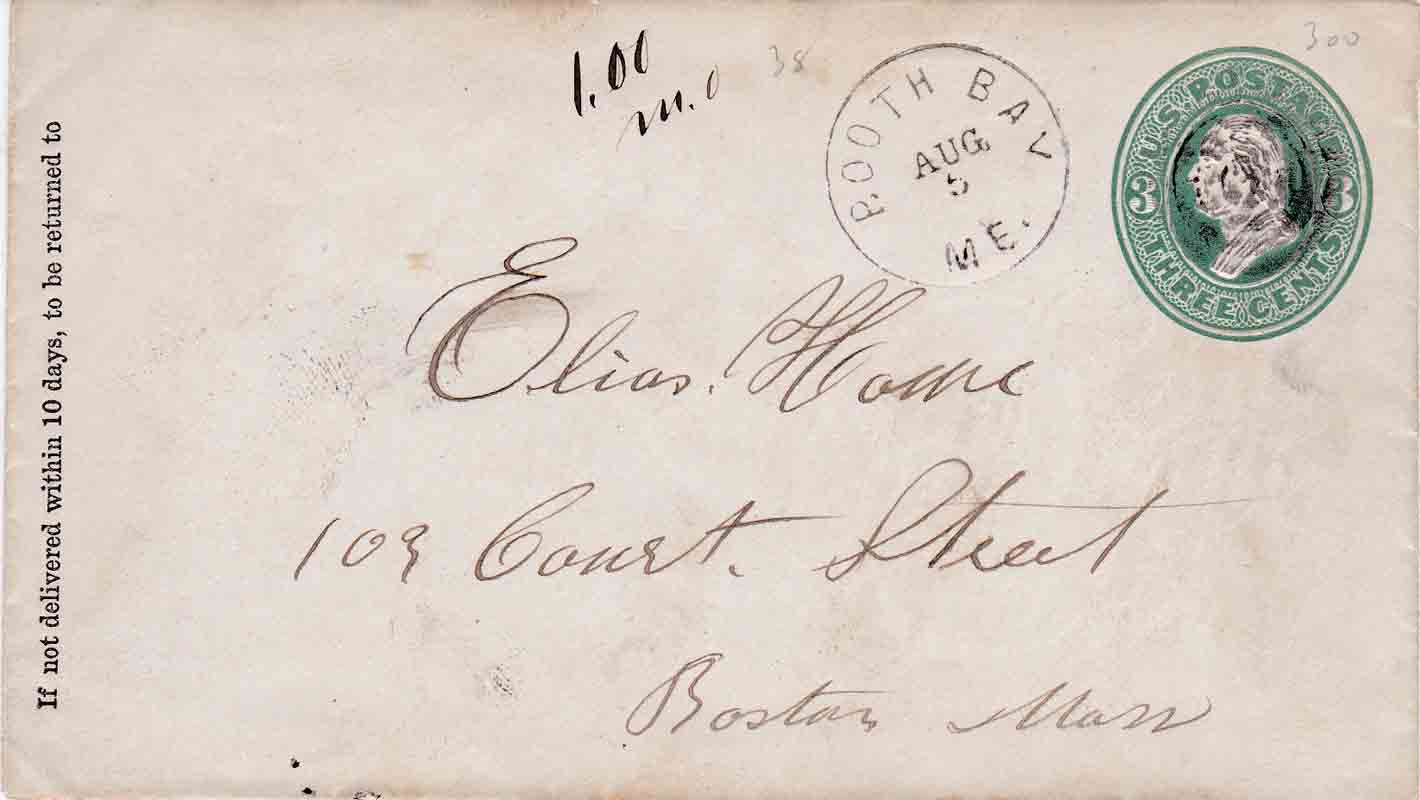 1.00
m.o
38
300
BOOTH BAY
AUG
5
ME.
U.S. POSTAGE
3 3
THREE CENTS
If not delivered within 10 days, to be returned to
Elias. Howe
103 Court. Street
Boston Mass